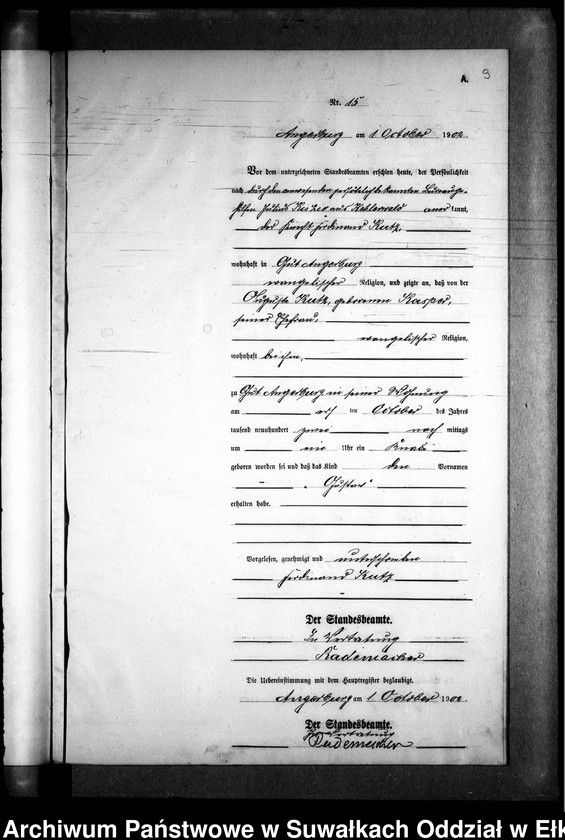 A. 9
Nr. 15
Angerburg am 1 October 1902
Vor dem unterzeichneten Standesbeamten erschien heute, der Persönlichkeit
nach durch den anwesenden persönlich bekannten
Julius aus Kehlerwald anerkannt,
der Knecht Ferdinand Kutz
wohnhaft in Gut Angerburg
evangelischer Religion, und zeigte an, daß von der
Auguste Kutz, geborenen Kasper,
seiner Ehefrau,
evangelischer Religion,
wohnhaft bei ihm,
zu Gut Angerburg in seiner Wohnung
am ten October des Jahres
tausend neunhundert zwei nach mittags
um Uhr ein Knabe
geboren worden sei und daß das Kind den Vornamen
„Gustav“
erhalten habe.
Vorgelesen, genehmigt und unterschrieben
Ferdinand Kutz
Der Standesbeamte.
In Vertretung
Rademacher
Die Uebereinstimmung mit dem Hauptregister beglaubigt.
Angerburg am 1. October 1902
Der Standesbeamte.
In Vertretung
Rademacher
Archiwum Państwowe w Suwałkach Oddział w Ełk